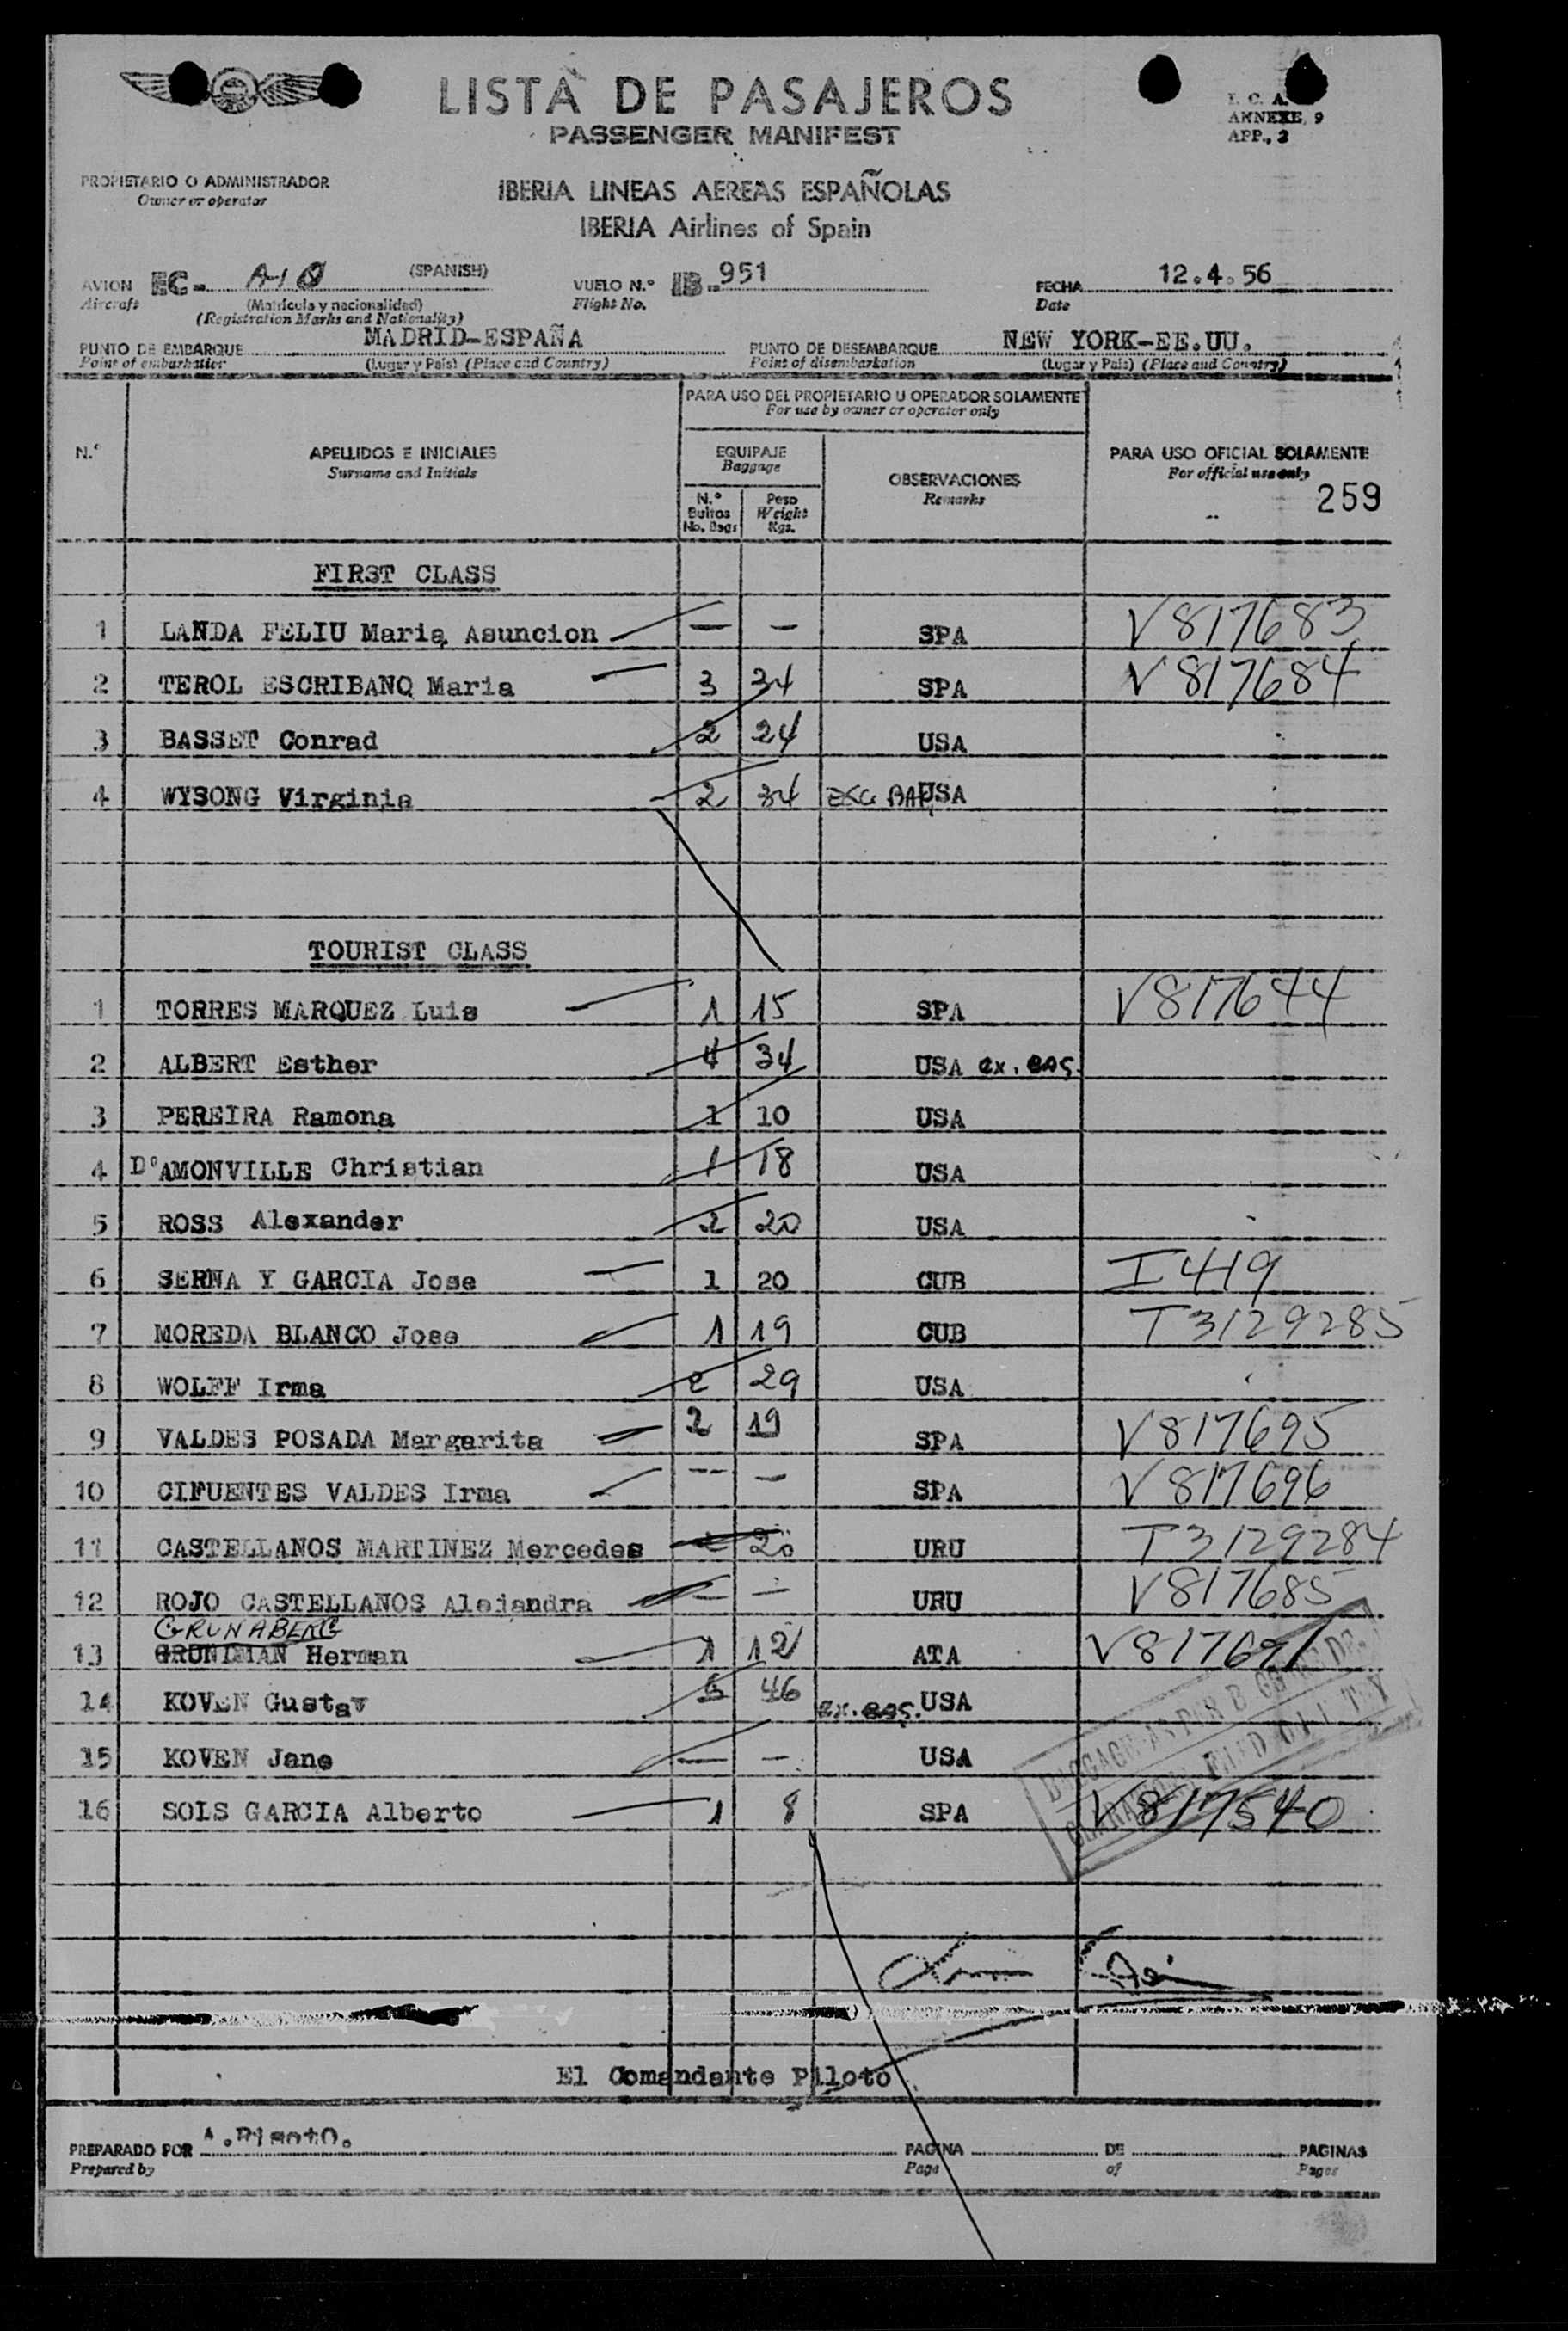 LISTA DE PASAJEROS
PASSENGER MANIFEST
I. C. A.
ANNEXE, 9
APP., 2
PROPIETARIO O ADMINISTRADOR
Owner or operator
IBERIA LINEAS AEREAS ESPAÑOLAS
IBERIA Airlines of Spain
AVION EC- (SPANISH) VUELO N.º IB-951 FECHA 12.4.56
Aircraft (Matrícula y nacionalidad) Flight No. Date
(Registration Marks and Nationality)
PUNTO DE EMBARQUE MADRID-ESPAÑA PUNTO DE DESEMBARQUE NEW YORK-EE.UU.
Point of embarkation (Lugar y País) (Place and Country) Point of disembarkation (Lugar y País) (Place and Country)
PARA USO DEL PROPIETARIO U OPERADOR SOLAMENTE
For use by owner or operator only
N.º APELLIDOS E INICIALES EQUIPAJE OBSERVACIONES PARA USO OFICIAL SOLAMENTE
Surname and Initials Baggage Remarks For official use only
259
N.º Bultos Peso
No. Bags Weight Kgs.
FIRST CLASS
1 LANDA FELIU Maria Asuncion — — SPA V817683
2 TEROL ESCRIBANO Maria 3 34 SPA V817684
3 BASSET Conrad 2 24 USA
4 WYSONG Virginia 2 34 EXC BAG USA
TOURIST CLASS
1 TORRES MARQUEZ Luis 1 15 SPA V817644
2 ALBERT Esther 4 34 USA ex. bag.
3 PEREIRA Ramona 1 10 USA
4 D'AMONVILLE Christian 1 18 USA
5 ROSS Alexander 2 20 USA
6 SERNA Y GARCIA Jose 1 20 CUB I419
7 MOREDA BLANCO Jose 1 19 CUB T3129285
8 WOLFF Irma 2 29 USA
9 VALDES POSADA Margarita 2 19 SPA V817695
10 CIFUENTES VALDES Irma — — SPA V817696
11 CASTELLANOS MARTINEZ Mercedes 20 URU T3129284
12 ROJO CASTELLANOS Alejandra — — URU V817685
GRUNABERG
13 GRUNDMAN Herman 1 12 ATA V817691
14 KOVEN Gustav 46 ex. bag. USA
15 KOVEN Jane — — USA
16 SOLS GARCIA Alberto 1 8 SPA V817540
El Comandante Piloto
PREPARADO POR PAGINA DE PAGINAS
Prepared by Page of Pages